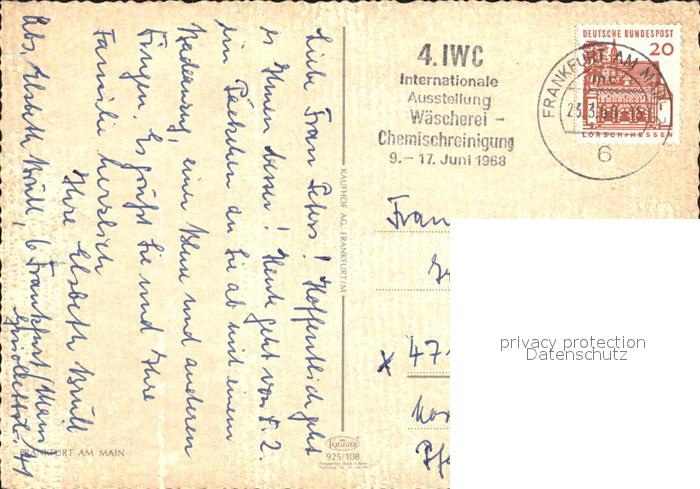 Liebe Frau Peters! Hoffentlich geht
es Ihnen besser! Heute geht von K. 2.
ein Päckchen an Sie ab mit einem
Kaden, einer Bluse und anderen
Dingen. Es grüßt Sie und Ihre
Familie herzlich
Ihre Elsbeth Brüll
Abs. Elsbeth Brüll, 6 Frankfurt/Main
41
FRANKFURT AM MAIN
KAUFHOF AG, FRANKFURT/M
KRÜGER
925/108
4. IWC
Internationale
Ausstellung
Wäscherei -
Chemischreinigung
9. - 17. Juni 1968
FRANKFURT AM MAIN
6
DEUTSCHE BUNDESPOST
20
LORSCH/HESSEN
Frau
x 47
privacy protection
Datenschutz